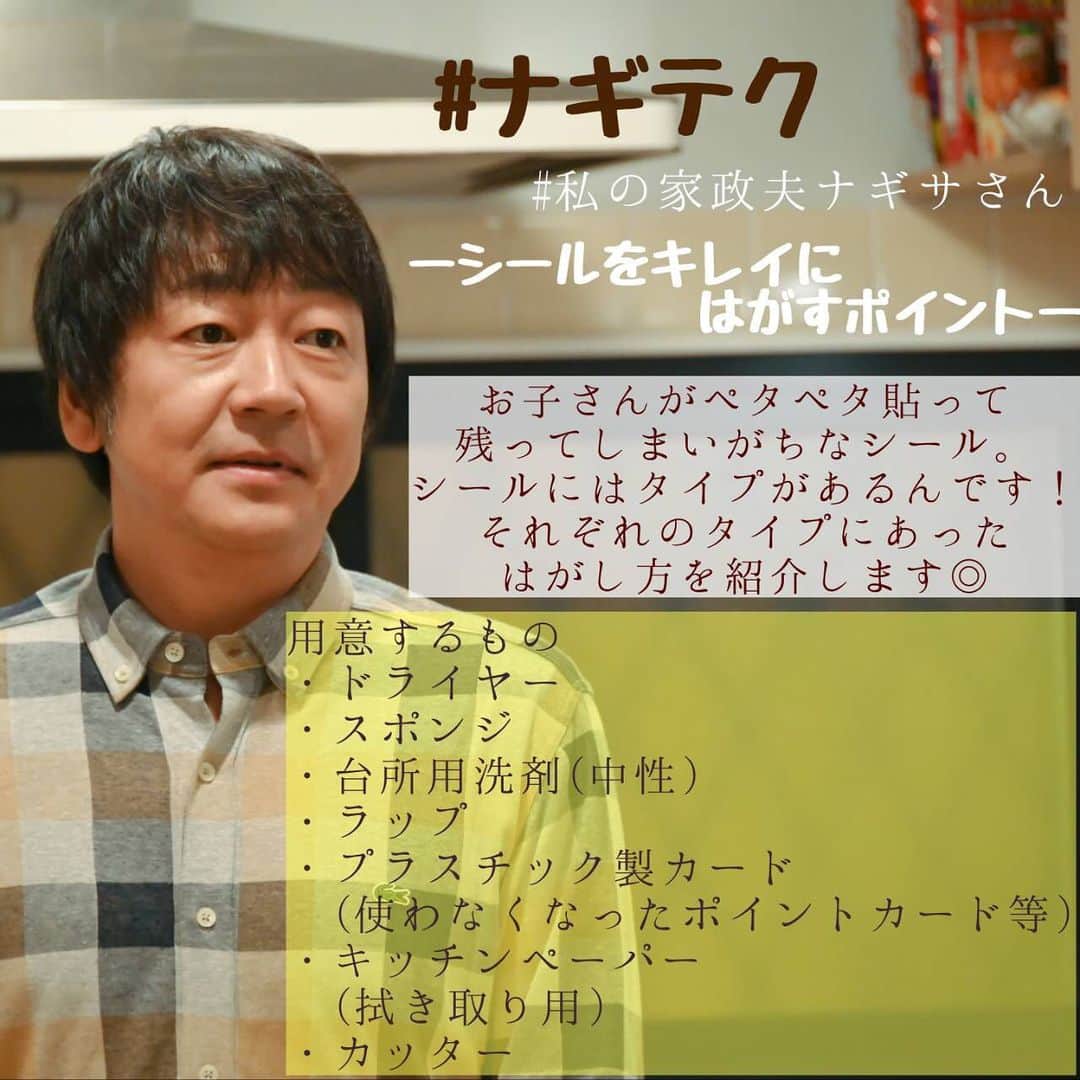 #ナギテク
#私の家政夫ナギサさん
ーシールをキレイに
はがすポイントー
お子さんがペタペタ貼って
残ってしまいがちなシール。
シールにはタイプがあるんです！
それぞれのタイプにあった
はがし方を紹介します◎
用意するもの
・ドライヤー
・スポンジ
・台所用洗剤(中性)
・ラップ
・プラスチック製カード
(使わなくなったポイントカード等)
・キッチンペーパー
(拭き取り用)
・カッター